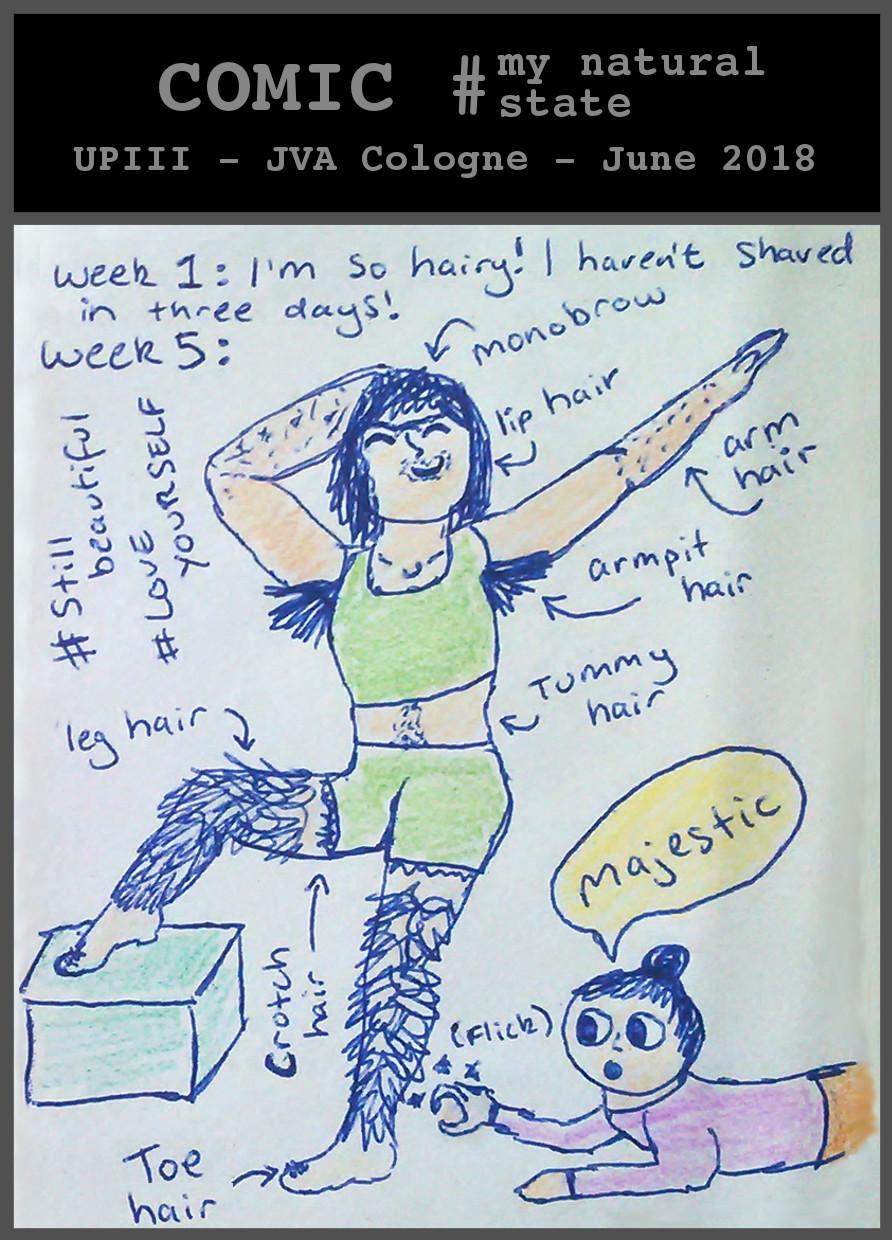 COMIC #my natural
state
UPIII - JVA Cologne - June 2018
Week 1: I'm so hairy! I haven't shaved
in three days!
Week 5:
monobrow
lip hair
arm
hair
#Still
beautiful
#LOVE
YOURSELF
armpit
hair
Tummy
hair
leg hair
Majestic
Crotch
hair
(Flick)
Toe
hair